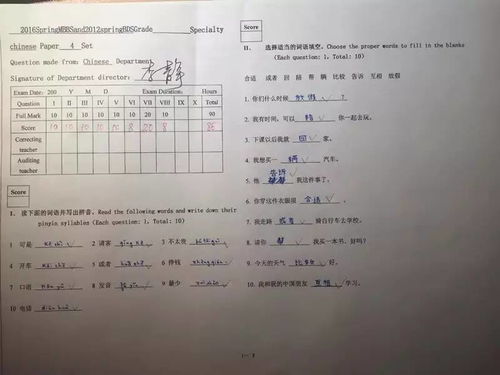 2016SpringMBBSand2012springBDSGrade________Specialty
chinese Paper 4 Set
Question made from: Chinese Department
Signature of Department director: 李静
Exam Date: 200 Y M D Exam Duration: Hours
Question I II III IV V VI VII VIII IX X Total
Full Mark 10 10 10 10 10 10 20 10 90
Score 10 10 10 10 10 8 20 8 86
Correcting teacher
Auditing teacher
Score
I. 按下面的词语并写出拼音。Read the following words and write down their
pinyin syllables (Each question: 1, Total: 10)
1 可是 2 请客 3 不太贵
4 开车 kāi chē 5 或者 huò zhě 6 挣钱
7 口语 kǒu yǔ 8 发音 fā yīn 9 最少 zuì shǎo
10 电话 diàn huà
Score
II. 选择适当的词语填空。Choose the proper words to fill in the blanks
(Each question: 1, Total: 10)
合适 或者 回 陪 帮 辆 比较 告诉 互相 放假
1. 你们什么时候 放假 ?
2. 我有时间,可以 陪 你一起去玩。
3. 下课以后我就 回 家。
4. 我想买一 辆 汽车。
5. 他 告诉 我这件事了。
6. 你穿这件衣服很 合适 。
7. 我走路 或者 骑自行车去学校。
8. 请你 帮 我买一本书,好吗?
9. 今天的天气 比较 好。
10. 我和我的中国朋友 互相 学习。